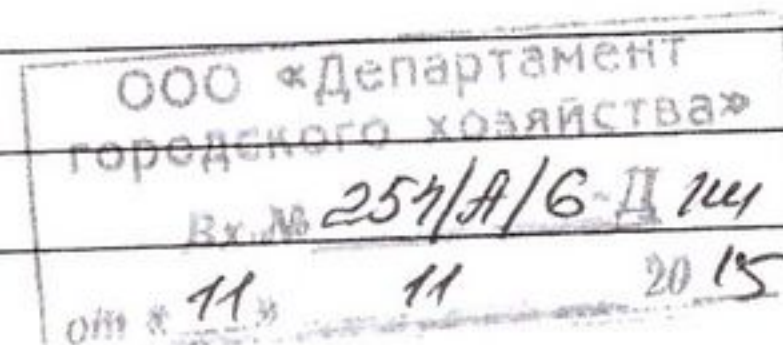 ООО «Департамент
городского хозяйства»
Вх.№ 257/А/6-Д
от «11» 11 2015